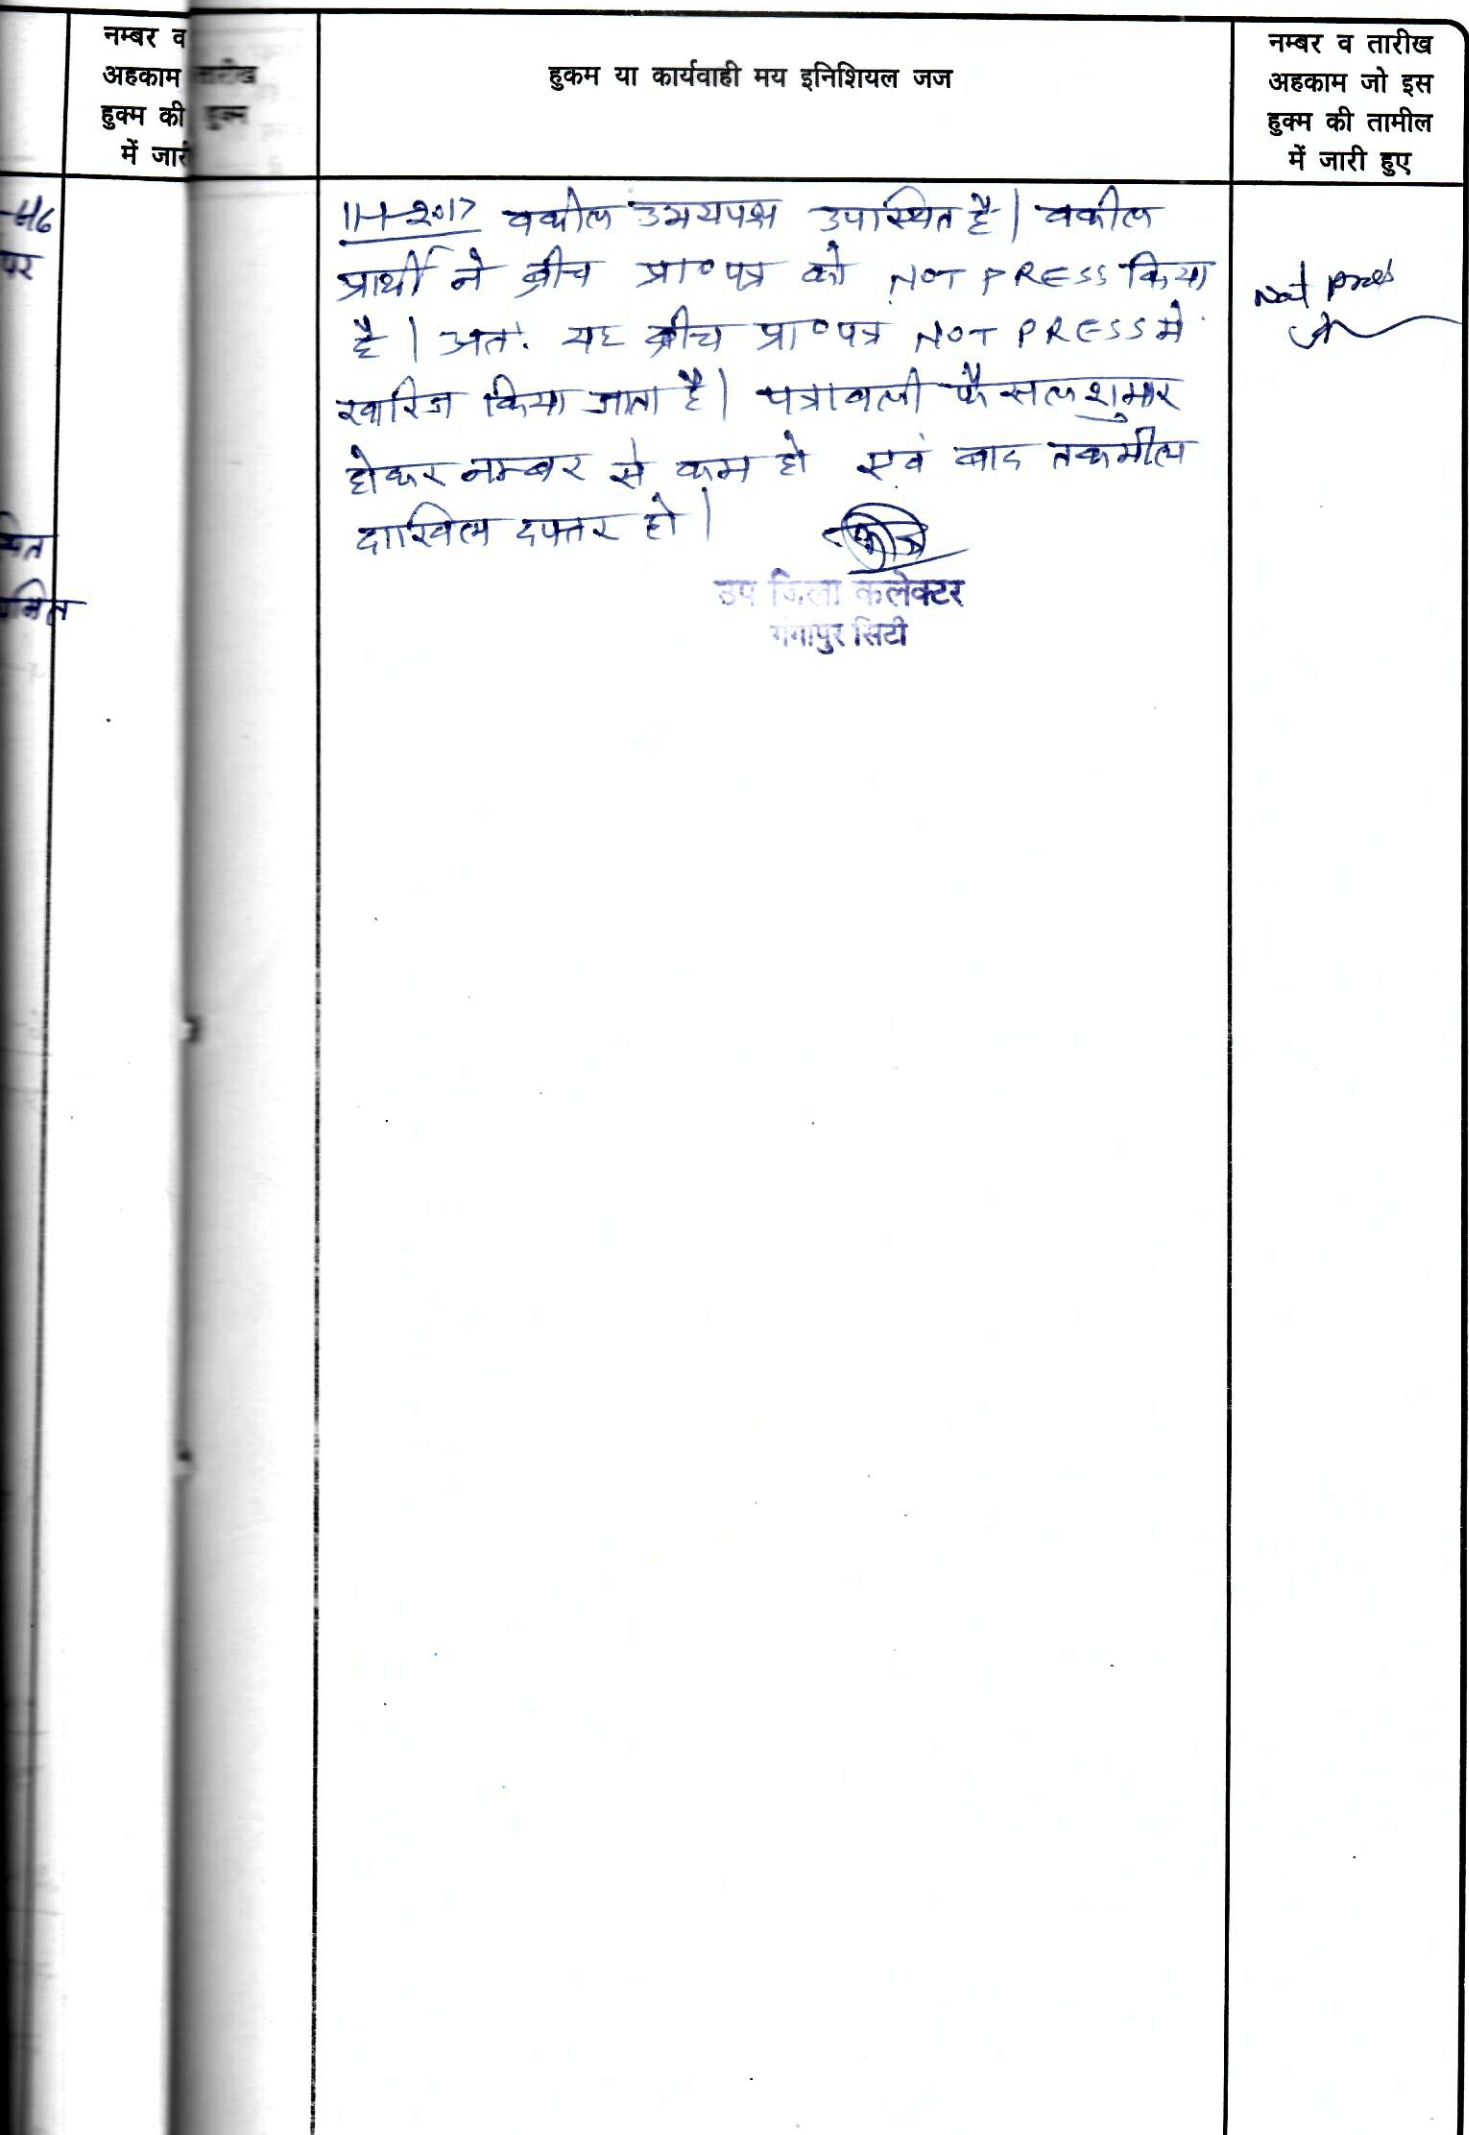 नम्बर व
अहकाम
हुक्म की
में जारी
तारीख
हुक्म
हुकम या कार्यवाही मय इनिशियल जज
नम्बर व तारीख
अहकाम जो इस
हुक्म की तामील
में जारी हुए
पर
11-1-2017 वकील उभयपक्ष उपस्थित है। वकील
प्रार्थी ने ब्रीच प्रा०पत्र को NOT PRESS किया
है। अतः यह ब्रीच प्रा०पत्र NOT PRESS मे
खारिज किया जाता है। पत्रावली फैसल शुमार
होकर नम्बर से कम हो एवं बाद तकमील
दाखिल दफ्तर हो।
Not press
उप जिला कलेक्टर
गंगापुर सिटी